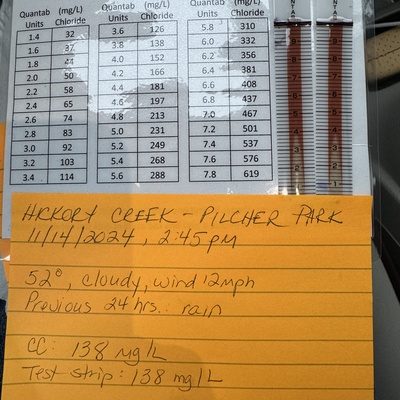 Quantab Units (mg/L) Chloride Quantab Units (mg/L) Chloride Quantab Units (mg/L) Chloride
1.4 32 3.6 126 5.8 310
1.6 37 3.8 138 6.0 332
1.8 44 4.0 152 6.2 356
2.0 50 4.2 166 6.4 381
2.2 58 4.4 181 6.6 408
2.4 65 4.6 197 6.8 437
2.6 74 4.8 213 7.0 467
2.8 83 5.0 231 7.2 501
3.0 92 5.2 249 7.4 537
3.2 103 5.4 268 7.6 576
3.4 114 5.6 288 7.8 619
HICKORY CREEK - PILCHER PARK
11/14/2024, 2:45pm
52°, cloudy, wind 12mph
Previous 24 hrs.: rain
CC: 138 mg/L
Test strip: 138 mg/L